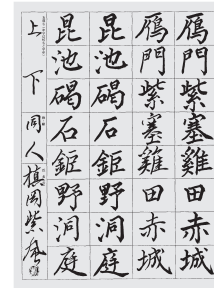 鴈門紫塞雞田赤城
鴈門紫塞雞田赤城
昆池碣石鉅野洞庭
昆池碣石鉅野洞庭
上
下
同人